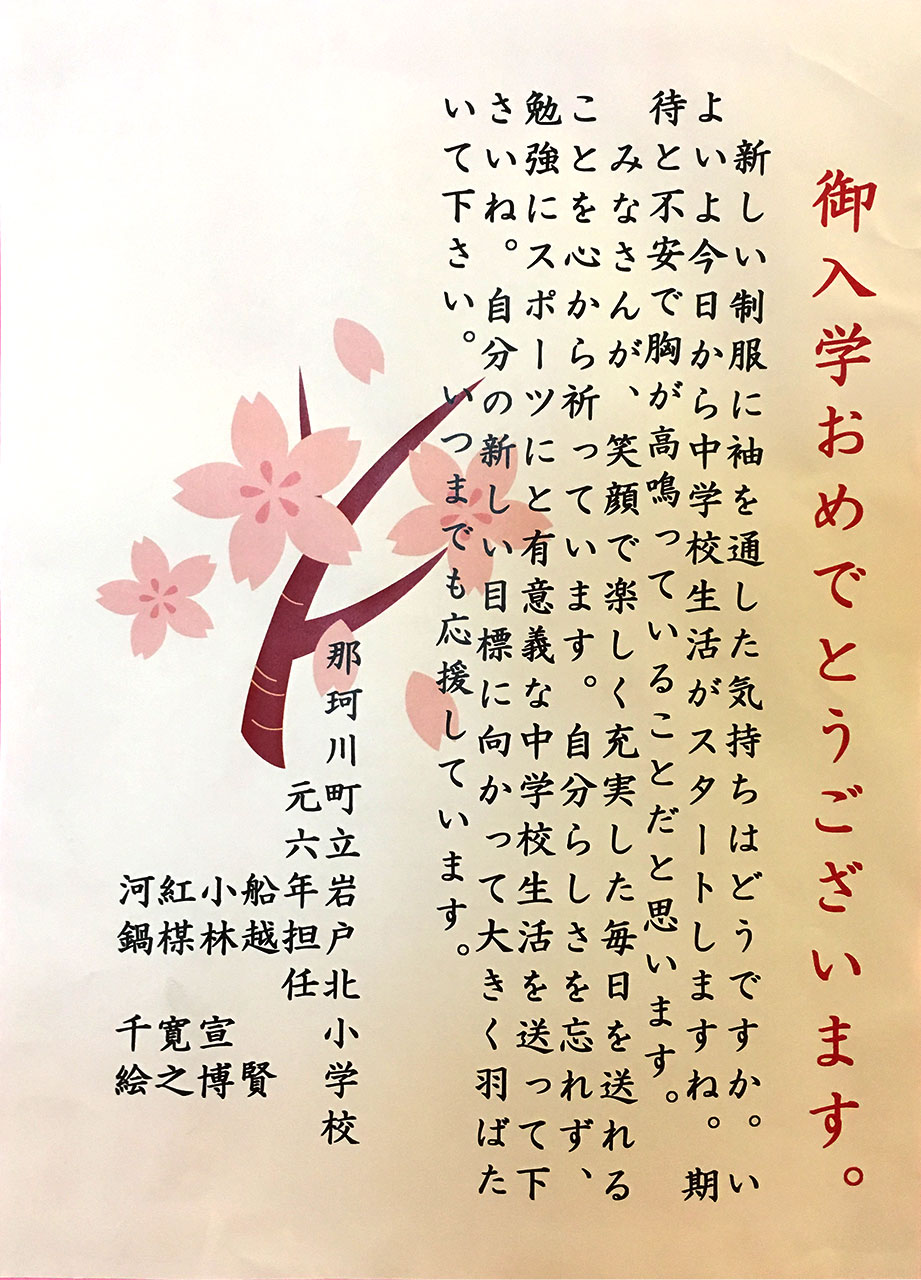 御入学おめでとうございます。
新しい制服に袖を通した気持ちはどうですか。い
よいよ今日から中学校生活がスタートしますね。期
待と不安で胸が高鳴っていることだと思います。
みなさんが、笑顔で楽しく充実した毎日を送れる
ことを心から祈っています。自分らしさを忘れず、
勉強にスポーツにと有意義な中学校生活を送って下
さいね。自分の新しい目標に向かって大きく羽ばた
いて下さい。いつまでも応援しています。
那珂川町立岩戸北小学校
元六年担任
船越 賢
小林 宣博
紅楳 寛之
河鍋 千絵